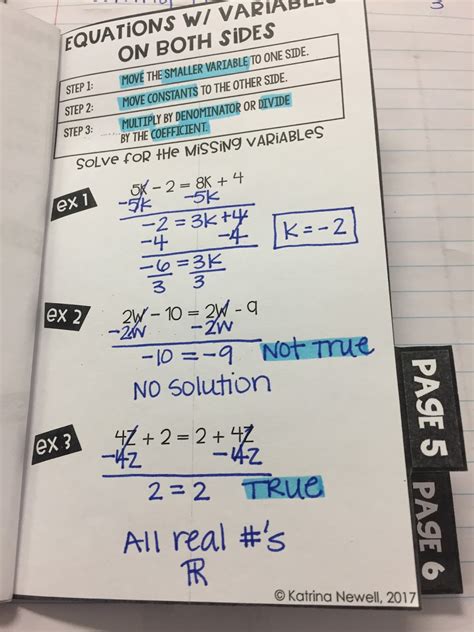 EQUATIONS W/ VARIABLES
ON BOTH SIDES
STEP 1: MOVE THE SMALLER VARIABLE TO ONE SIDE.
STEP 2: MOVE CONSTANTS TO THE OTHER SIDE.
STEP 3: ...... MULTIPLY BY DENOMINATOR OR DIVIDE
BY THE COEFFICIENT.
SOLVE FOR THE MISSING VARIABLES
ex 1
5K - 2 = 8K + 4
-5K -5K
-2 = 3K + 4
-4 -4
-6 = 3K
3 3
K = -2
ex 2
2W - 10 = 2W - 9
-2W -2W
-10 = -9 Not True
NO Solution
ex 3
4Z + 2 = 2 + 4Z
-4Z -4Z
2 = 2 TRUE
All real #'s
ℝ
PAGE 5
PAGE 6
© Katrina Newell, 2017
3